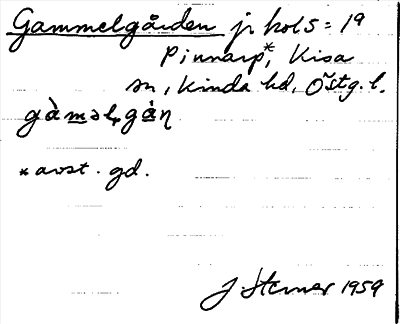 Gammelgården jr kol 5 = 19
Pinnarp*, Kisa
sn, Kinda hd, Östg. l.
gàməlgån
* avst. gd.
J. Sterner 1959